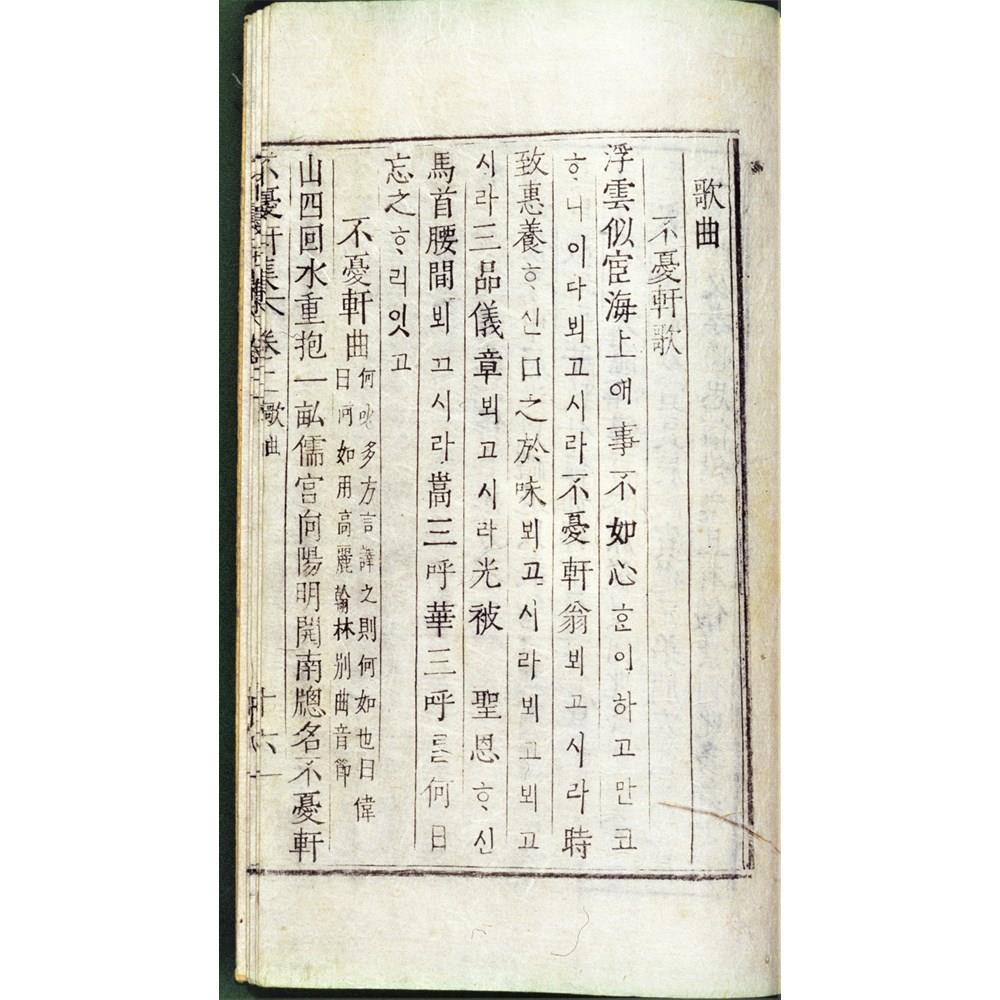 歌曲
不憂軒歌
浮雲似宦海上애事不如心ᄒᆞᆫ이하고만코
ᄒᆞ니이다뵈고시라不憂軒翁뵈고시라時
致惠養ᄒᆞ신口之於味뵈고시라뵈고뵈고
시라三品儀章뵈고시라光被 聖恩ᄒᆞ신
馬首腰間뵈고시라嵩三呼華三呼를何日
忘之ᄒᆞ리잇고
不憂軒曲
何叱多方言譯之則何如也曰偉
曰何如用高麗翰林別曲音節
山四回水重抱一畝儒宮向陽明開南牕名不憂軒
不憂軒集 卷二 歌曲 十六